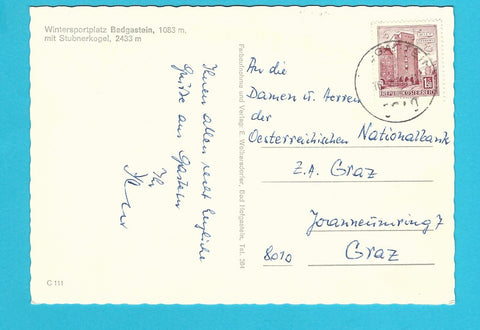 Wintersportplatz Badgastein, 1083 m.
mit Stubnerkogel, 2433 m
Ihnen allen recht herzliche
Grüße aus Gastein
Ihr
Farbaufnahme und Verlag: E. Wolkersdorfer, Bad Hofgastein, Tel. 264
REPUBLIK ÖSTERREICH
An die
Damen u. Herren
der
Oesterreichischen Nationalbank
Z.A. Graz
Joanneumring 7
8010 Graz
C 111